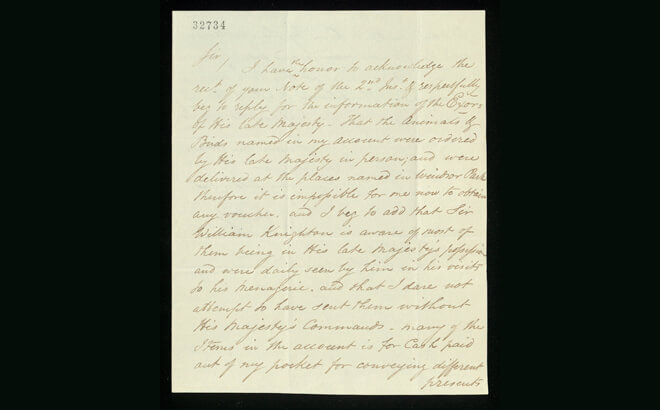 32734
Sir,
I have the honor to acknowledge the
rect. of your Note of the 2nd Inst. & respectfully
beg to reply for the information of the Exors
of His late Majesty - That the Animals &
Birds named in my account were ordered
by His late Majesty in person, and were
delivered at the places named in Windsor Park
therefore it is impossible for me now to obtain
any voucher. and I beg to add that Sir
William Knighton is aware of most of
them being in His late Majesty's possession
and were daily seen by him in his visits
to his menagerie. and that I dare not
attempt to have sent them without
His Majesty's Commands - many of the
Items in the account is for Cash paid
out of my pocket for conveying different
presents